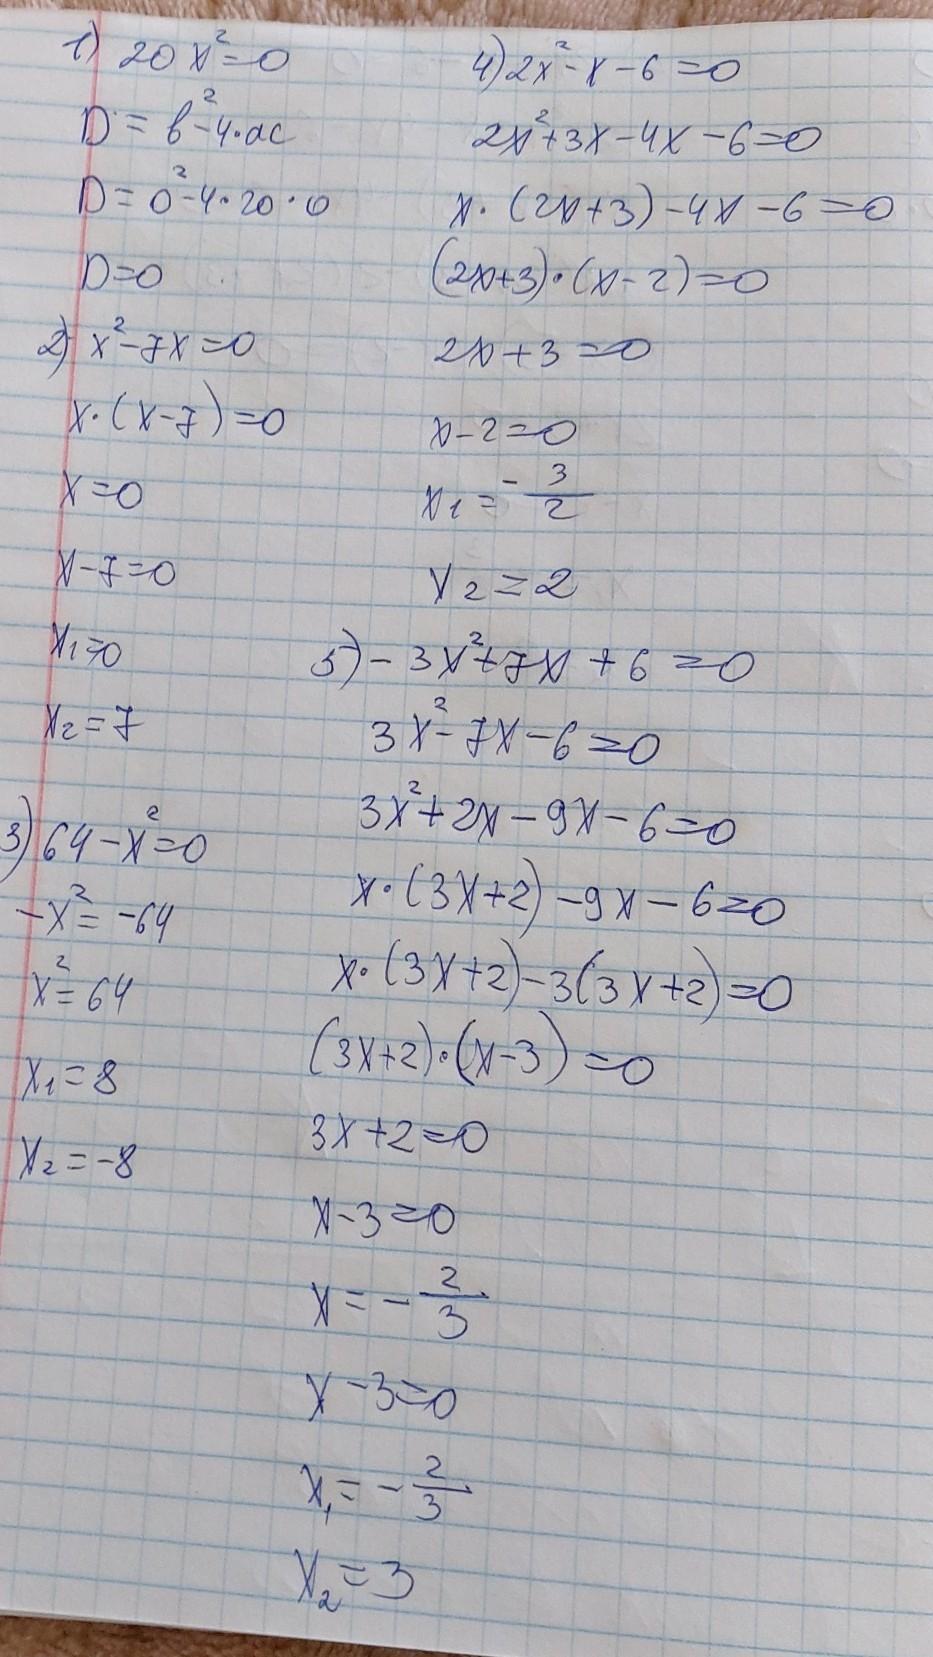 1) 20x²=0
D = b²-4·ac
D = 0²-4·20·0
D=0
2) x²-7x=0
x·(x-7)=0
x=0
x-7=0
x₁=0
x₂=7
3) 64-x²=0
-x²=-64
x²=64
x₁=8
x₂=-8
4) 2x²-x-6=0
2x²+3x-4x-6=0
x·(2x+3)-4x-6=0
(2x+3)·(x-2)=0
2x+3=0
x-2=0
x₁=-3/2
x₂=2
5) -3x²+7x+6=0
3x²-7x-6=0
3x²+2x-9x-6=0
x·(3x+2)-9x-6=0
x·(3x+2)-3(3x+2)=0
(3x+2)·(x-3)=0
3x+2=0
x-3=0
x=-2/3
x-3=0
x₁=-2/3
x₂=3